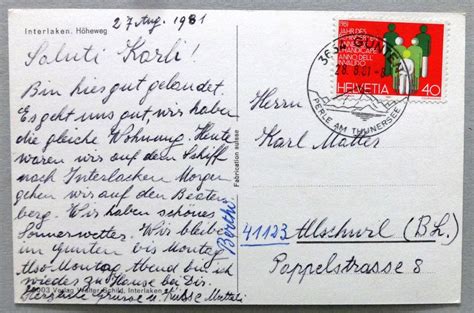 Interlaken. Höheweg
27 Aug. 1981
Saluti Karli!
Bin hier gut gelandet.
Es geht uns gut, wir haben
die gleiche Wohnung. Heute
waren wir auf dem Schiff
nach Interlacken Morgen
gehen wir auf den Beaten
berg. Wir haben schönes
Sonnenwetter. Wir bleiben
im Gunten bis Montag
Also Montag Abend bin ich
wieder zu Hause bei Dir.
Herzliche Grüsse u. Küsse
Berthi
Verlag Walter Schild, Interlaken
Fabrication suisse
3654 GUNTEN
28.8.81-8
PERLE AM THUNERSEE
1981
JAHR DES
HELVETIA 40
Herrn
Karl Matter
41123 Allschwil (BL.)
Pappelstrasse 8